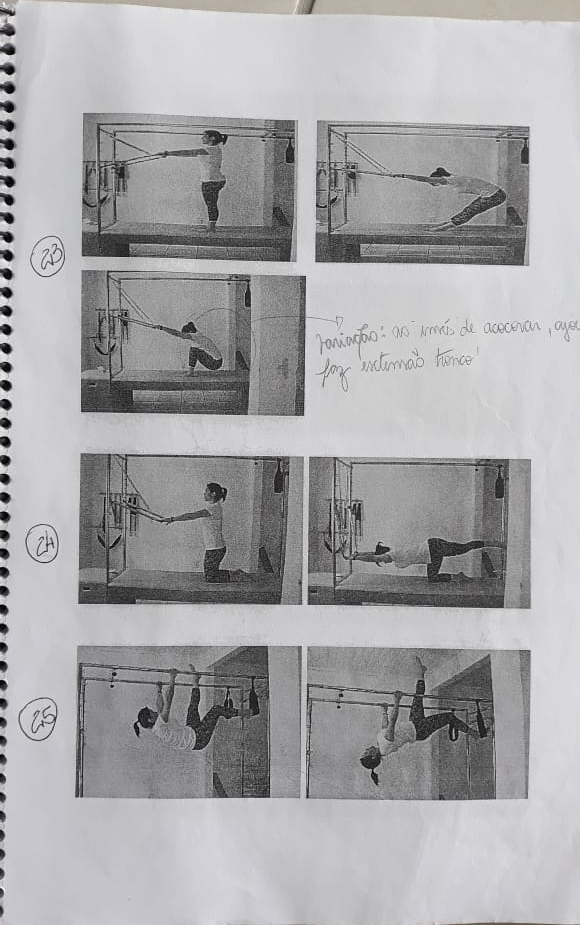 23
variação: ao invés de acocorar,
faz extensão tronco
24
25